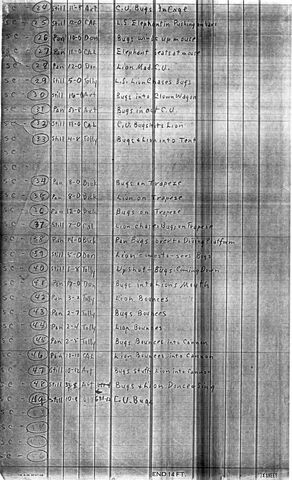 SC - 24 Still 11-8 Art C.U. Bugs In Cage
SC - 25 Still 10-0 CAL L.S. Elephant in Pushing
SC - 26 Pan 10-0 Don Bugs winds up mouse
SC - 27 Pan 11-0 CAL Elephant seats at mouse
SC - 28 Pan 12-0 Don Lion Mad C.U.
SC - 29 Still 5-0 Tolly L.S. Lion Chases Bugs
SC - 30 Still 16-0 Art Bugs into Clown Wagon
SC - 31 Pan Art Bugs in out C.U.
SC - 32 Still 11-0 CAL C.U. Bugs hits Lion
SC - 33 Still 4-8 Tolly Bugs & Lion into Tent
SC -
SC -
SC - 34 Pan 8-0 Dick Bugs on Trapeze
SC - 35 Pan 8-0 Dick Lion on Trapeze
SC - 36 Pan 12-0 Dick Bugs on Trapeze
SC - 37 Still 7-0 Lion chases Bugs on Trapeze
SC - 38 Pan 14-0 Dick Pan Bugs over to Diving Platform
SC - 39 Still 5-0 Don Lion sees Bugs
SC - 40 Still 2-8 Tolly Up shot - Bugs Coming Down
SC - 41 Pan 17-0 Don Bugs into Lion's Mouth
SC - 42 Pan 3-2 Tolly Lion Bounces
SC - 43 Pan 2-7 Tolly Bugs Bounces
SC - 44 Pan 2-4 Tolly Lion Bounces
SC - 45 Pan 2-5 Tolly Bugs Bounces into Cannon
SC - 46 Pan 11-0 CAL Lion Bounces into Cannon
SC - 47 Still 10-12 Art Bugs stuffs Lion into Cannon
SC - 48 Still Art Bugs & Lion Dance & Sing
SC - 49 Still 10-9 C.U. Bugs
SC -
SC -
SC -
SC -
END 14 FT.